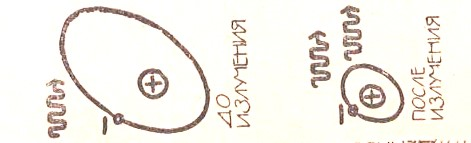 ДО
ИЗЛУЧЕНИЯ
ПОСЛЕ
ИЗЛУЧЕНИЯ